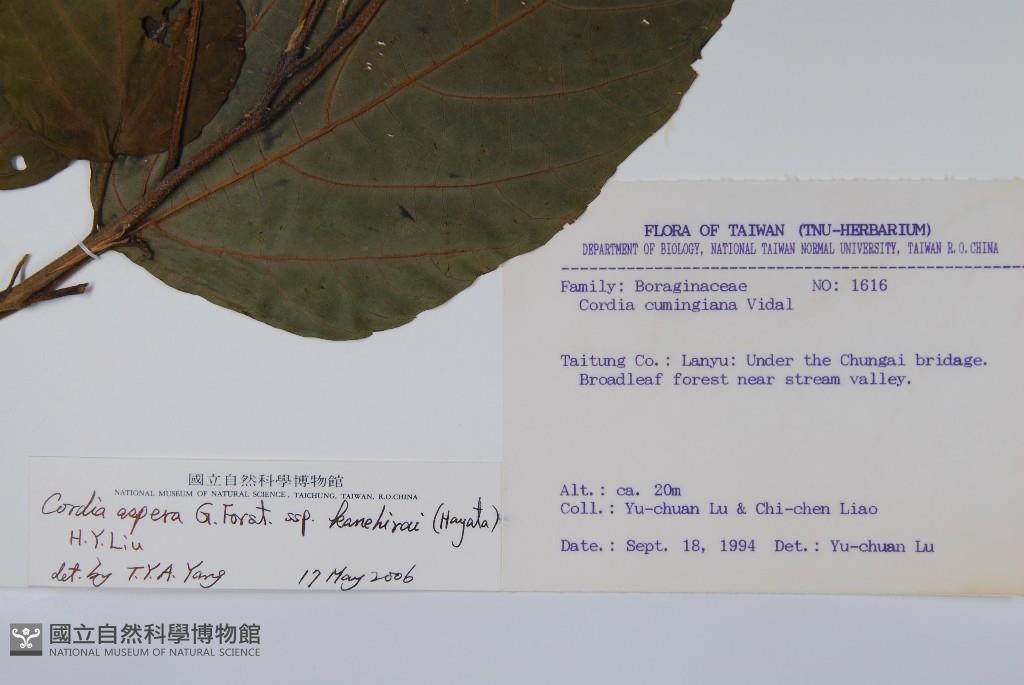 FLORA OF TAIWAN (TNU-HERBARIUM)
DEPARTMENT OF BIOLOGY, NATIONAL TAIWAN NORMAL UNIVERSITY, TAIWAN R.O.CHINA
Family: Boraginaceae NO: 1616
Cordia cumingiana Vidal
Taitung Co.: Lanyu: Under the Chungai bridage.
Broadleaf forest near stream valley.
Alt.: ca. 20m
Coll.: Yu-chuan Lu & Chi-chen Liao
Date.: Sept. 18, 1994 Det.: Yu-chuan Lu
國立自然科學博物館
NATIONAL MUSEUM OF NATURAL SCIENCE, TAICHUNG, TAIWAN, R.O.CHINA
Cordia aspera G.Forst. ssp. kanehirai (Hayata)
H.Y.Liu
det. by T.Y.A. Yang 17 May 2006
國立自然科學博物館
NATIONAL MUSEUM OF NATURAL SCIENCE